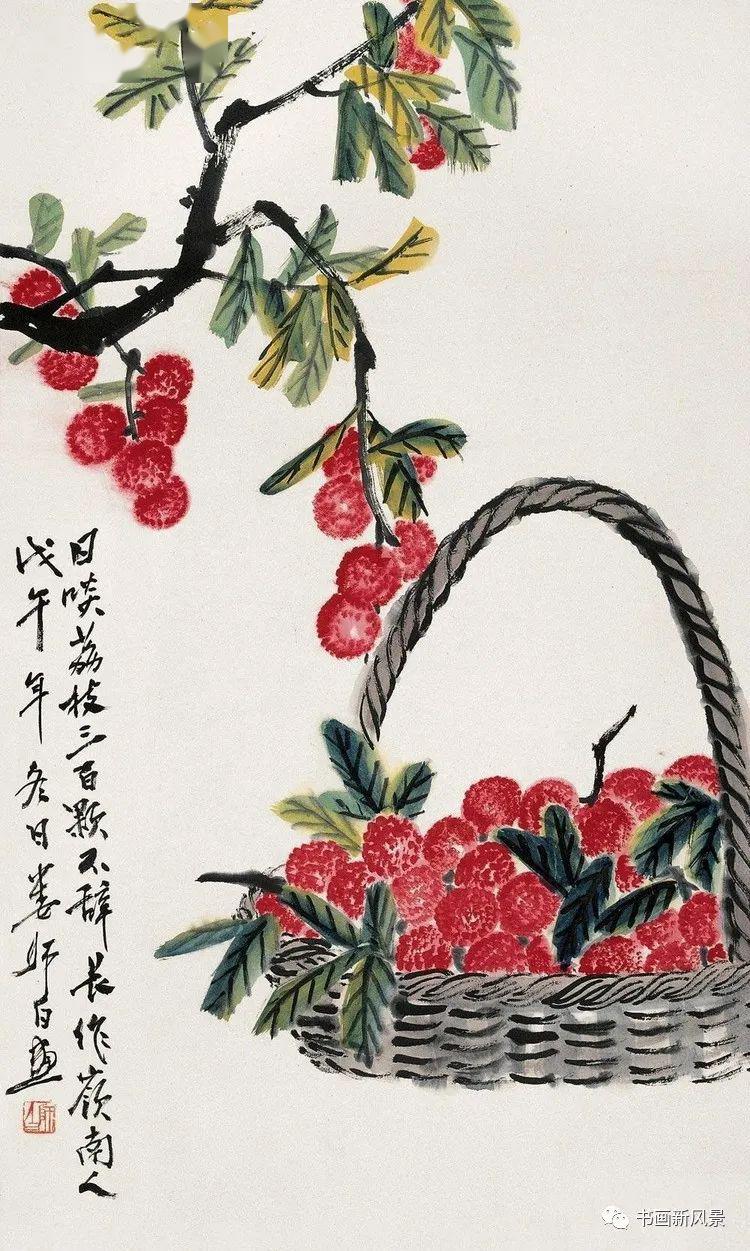 日啖荔枝三百颗不辞长作嶺南人
戊午年冬日娄师白画
书画新风景